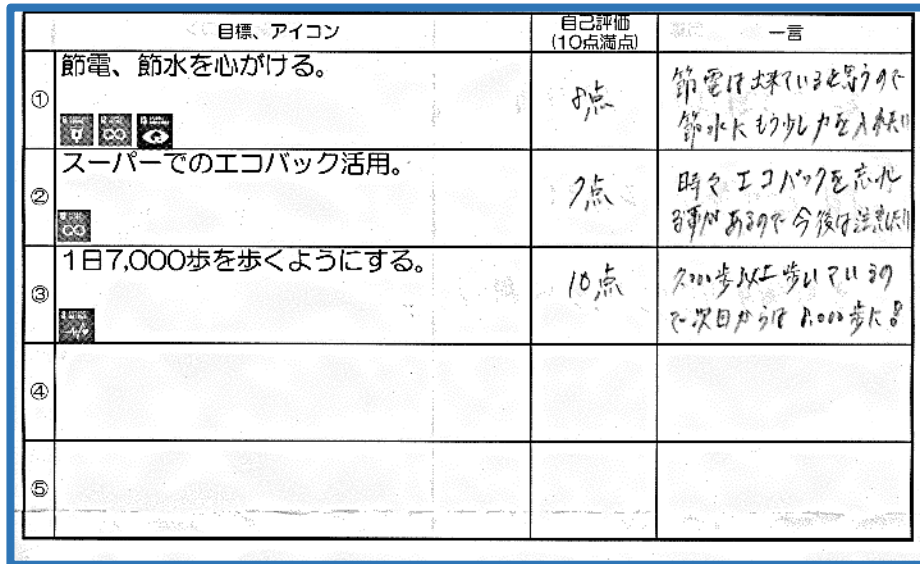 目標、アイコン
自己評価
(10点満点)
一言
①
節電、節水を心がける。
8点
節電は出来ていると思うので
節水にもう少し力を入れたい
②
スーパーでのエコバック活用。
7点
時々エコバックを忘れ
る事があるので今後は注意したい
③
1日7,000歩を歩くようにする。
10点
7,000歩以上歩いているの
で次回からは8,000歩に!
④
⑤